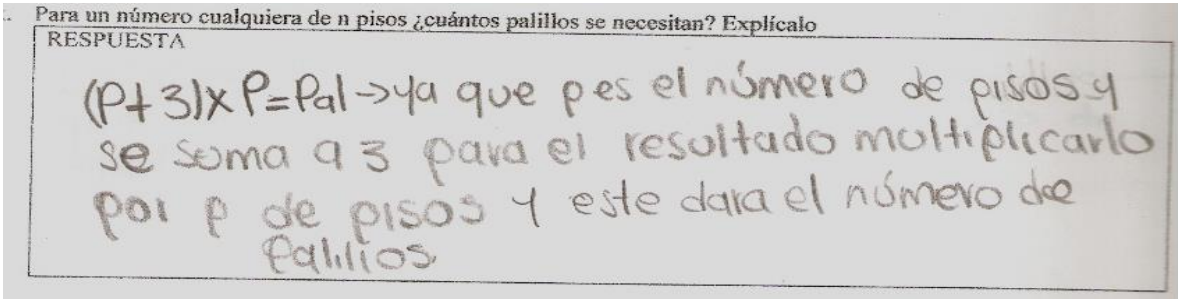 Para un número cualquiera de n pisos ¿cuántos palillos se necesitan? Explícalo
RESPUESTA
(P+3)xP=Pal→ya que p es el número de pisos y
se suma a 3 para el resultado multiplicarlo
por p de pisos y este dara el número de
Palillos.